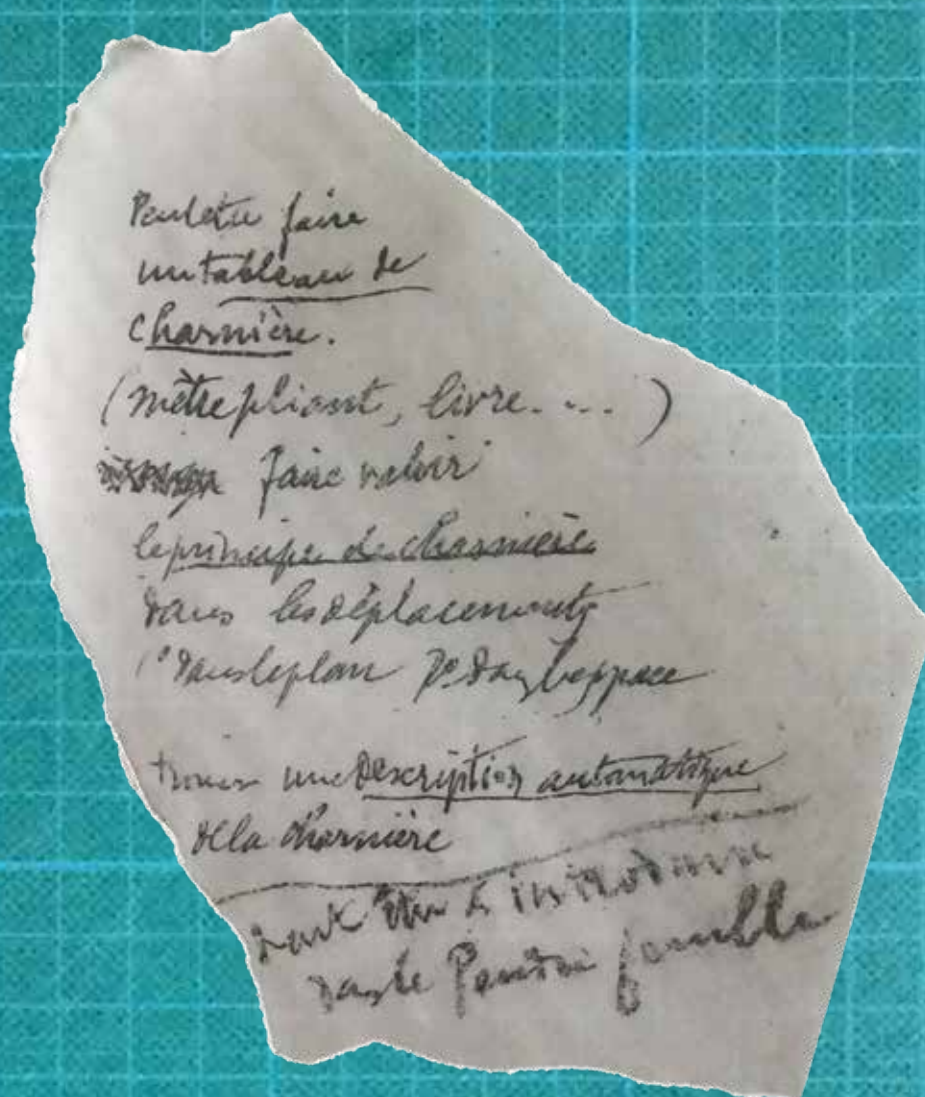 Peutêtre faire
un tableau de
charnière.
(mètre pliant, livre.....)
faire valoir
le principe de charnière
dans les déplacements
1° dans le plan 2° dans l'espace
trouver une description automatique
de la charnière
peut être à introduire
dans le Pendu femelle